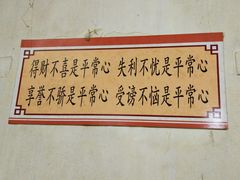 得财不喜是平常心 失利不忧是平常心
享誉不骄是平常心 受谤不恼是平常心